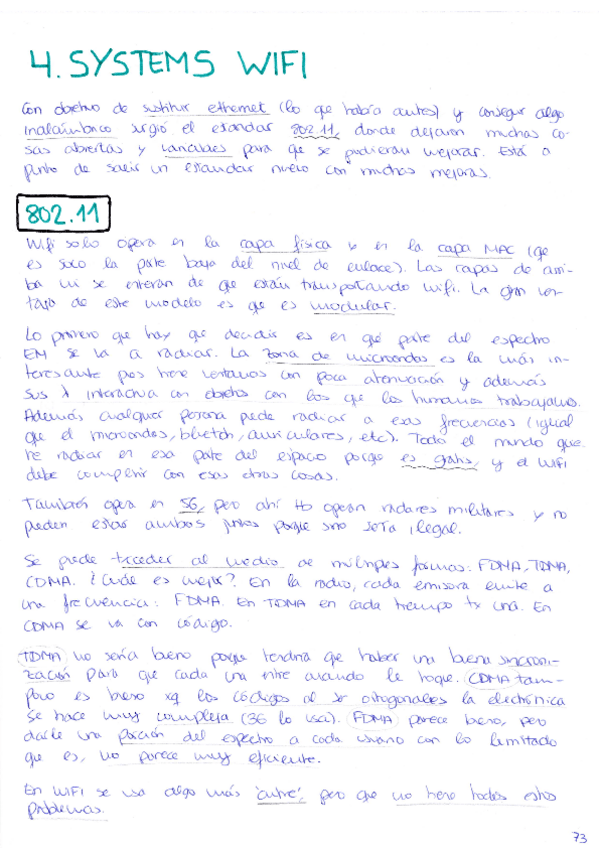 4. SYSTEMS WIFI
Con objetivo de sustituir ethernet (lo que había antes) y conseguir algo
inalámbrico surgió el estandar 802.11, donde dejaron muchas co-
sas abiertas y variables para que se pudieran mejorar. Está a
punto de salir un estandar nuevo con muchas mejoras.
802.11
Wifi solo opera en la capa física y en la capa MAC (que
es solo la parte baja del nivel de enlace). Las capas de arri-
ba ni se enteran de que están transportando wifi. La gran ven-
taja de este modelo es que es modular.
Lo primero que hay que decidir es en qué parte del espectro
EM se va a radiar. La zona de microondas es la más in-
teresante pues tiene ventanas con poca atenuación y además
sus λ interactua con objetos con los que los humanos trabajamos.
Además cualquier persona puede radiar a esas frecuencias (igual
que el microondas, bluetooth, auriculares, etc). Todo el mundo quie-
re radiar en esa parte del espacio porque es gratis, y el WiFi
debe cumplir con esas otras cosas.
También opera en 5G, pero ahí tb operan radares militares y no
pueden estar ambos juntos porque sino sería ilegal.
Se puede acceder al medio de múltiples formas: FDMA, TDMA,
CDMA. ¿Cuál es mejor? En la radio, cada emisora emite a
una frecuencia: FDMA. En TDMA en cada tiempo tx una. En
CDMA se va con código.
TDMA no sería bueno porque tendría que haber una buena sincroni-
zación para que cada una entre cuando le toque. CDMA tam-
poco es bueno xq los códigos al ser ortogonales la electrónica
se hace muy compleja (3G lo usa). FDMA parece bueno, pero
darle una porción del espectro a cada usuario con lo limitado
que es, no parece muy eficiente.
En WIFI se usa algo más 'cutre', pero que no tiene todos estos
problemas.
73